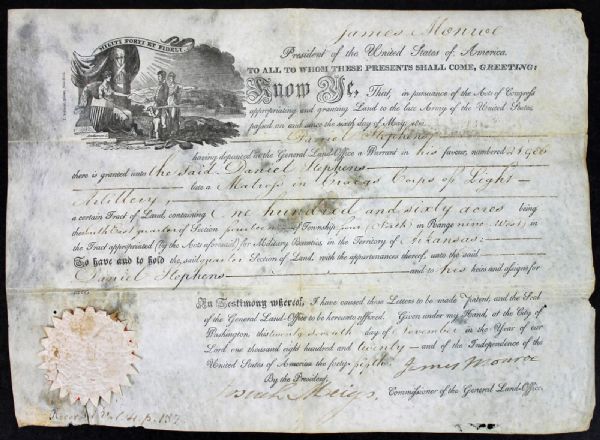 James Monroe
President of the United States of America.
MILITI FORTI ET FIDELI.
TO ALL TO WHOM THESE PRESENTS SHALL COME, GREETING:
Know Ye, That, in pursuance of the Acts of Congress
appropriating and granting Land to the late Army of the United States,
passed on and since the sixth day of May, 1812,
Daniel Stephens
having deposited in the General Land-Office a Warrant in his favour, numbered
there is granted unto the said Daniel Stephens
late a Matross in Corps of Light
Artillery,
a certain Tract of Land, containing One hundred and sixty acres being
the South East quarter of Section fourteen of Township four (North) in Range nine West, in
the Tract appropriated (by the Acts aforesaid) for Military Bounties, in the Territory of Arkansas:
To have and to hold the said quarter Section of Land, with the appurtenances thereof, unto the said
Daniel Stephens and to his heirs and assigns for
ever.
In Testimony whereof, I have caused these Letters to be made Patent, and the Seal
of the General Land-Office to be hereunto affixed. Given under my Hand, at the City of
Washington, this twenty seventh day of November in the Year of our
Lord one thousand eight hundred and twenty and of the Independence of the
United States of America the forty-
By the President, James Monroe
Josiah Meigs, Commissioner of the General Land-Office.
Recorded Vol. p. 137